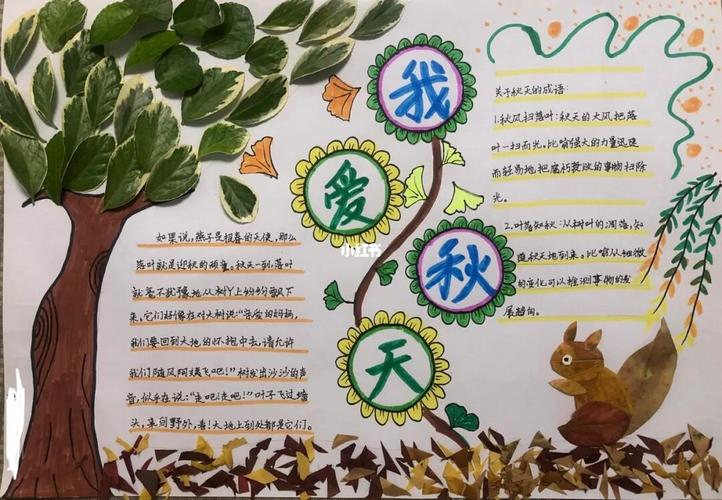 我
爱
秋
天
如果说，燕子是报春的天使，那么
落叶就是迎秋的硕童。秋天一到，落叶
就毫不犹豫地从树丫上纷纷飘下
来，它们好像在对大树说：“亲爱的妈妈，
我们要回到大地的怀抱中去，请允许
我们随风阿娣飞吧！”树枝出沙沙的声
音，似乎在说：“走吧！走吧！”叶子飞过墙
头，来到野外，看！大地上到处都是它们。
关于秋天的成语：
1.秋风扫落叶：秋天的大风把落
叶一扫而光。比喻强大的力量迅速
而轻易地把腐朽衰败的事物扫除
光。
2.叶落知秋：从树叶的凋落，知
道秋天地到来。比喻从细微
的变化可以推测事物的发
展趋向。
小红书